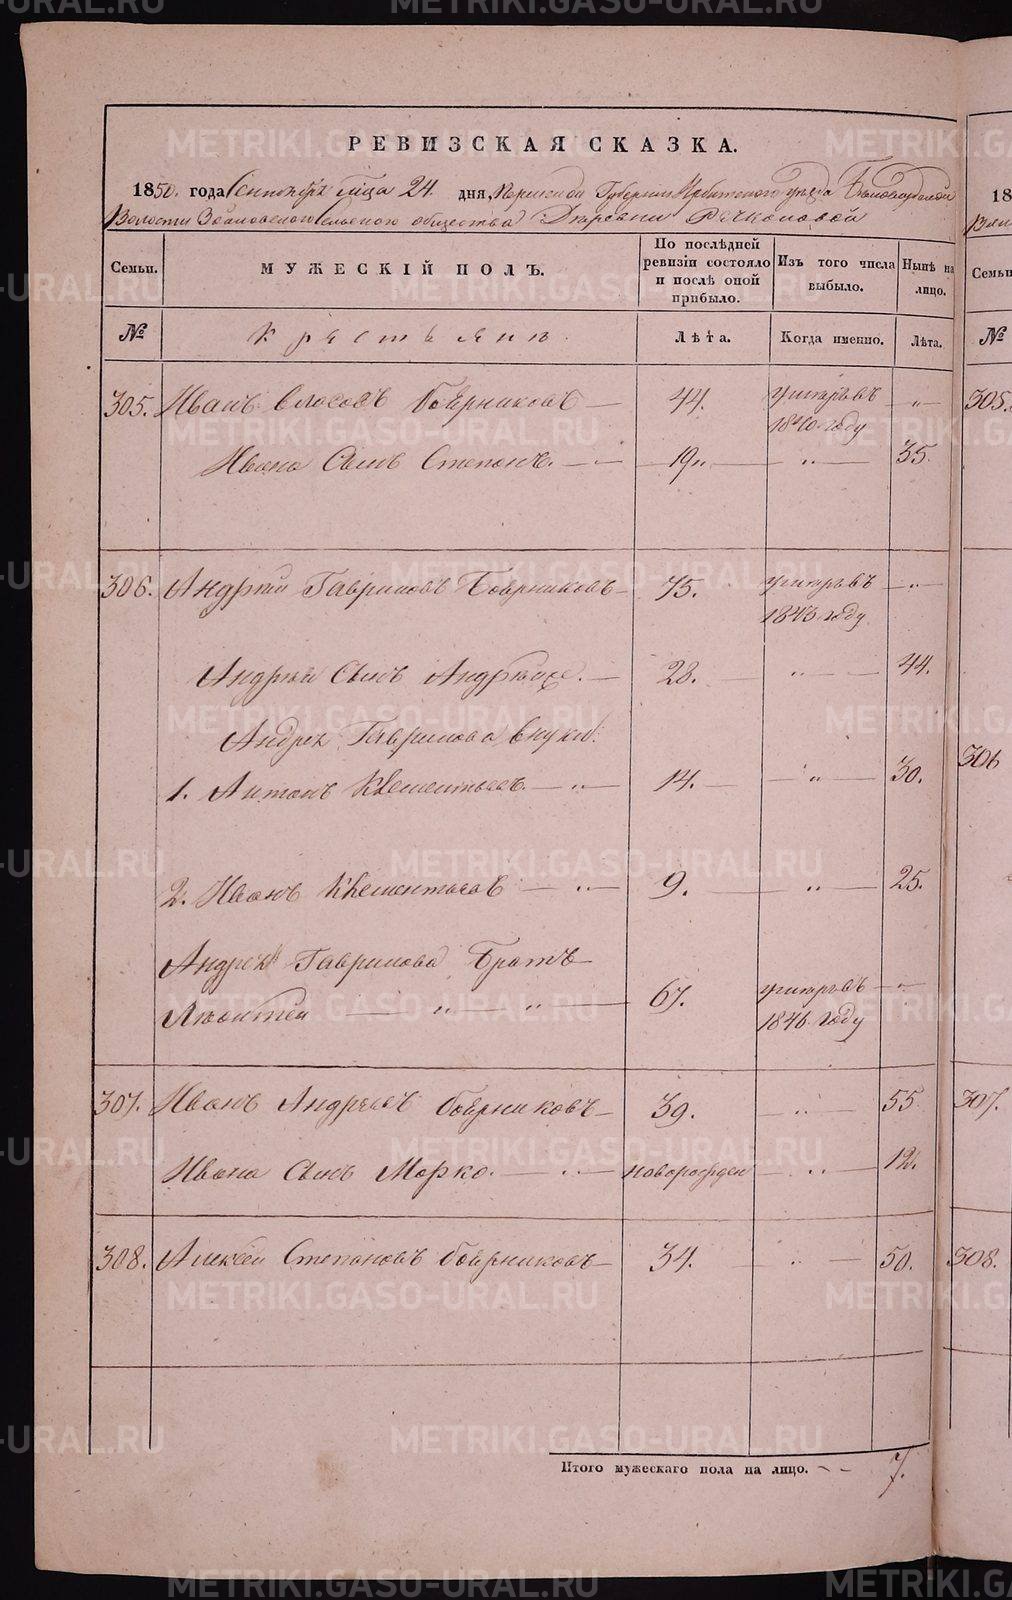 РЕВИЗСКАЯ СКАЗКА.
1850. года Сентября м̃ца 24. дня, Пермской Губернии Ирбитского уѣзда Белослудской
Волости Сельского общества Деревни Речкаловой
Семьи.
МУЖЕСКІЙ ПОЛЪ.
По послѣдней ревизіи состояло и послѣ оной прибыло.
Изъ того числа выбыло.
Нынѣ на лицо.
№ Крестьянъ. Лѣта. Когда именно. Лѣта.
305. Иванъ Власовъ Боярниковъ — 44. умеръ въ 1840. году — „ —
Ивана Сынъ Степанъ. — „ — 19„ — „ — 35.
306. Андрей Гавриловъ Боярниковъ — 75. умеръ въ 1843. году — „ —
Андрея Сынъ — 28. — „ — 44.
Андрея Гаврилова внуки:
1. Антонъ Клементьевъ — „ — 14. — „ — 30.
2. Иванъ Клементьевъ — „ — 9. — „ — 25.
Андрея Гаврилова Братъ —
Леонтей — „ — „ — 67. умеръ въ 1846. году — „ —
307. Иванъ Андреевъ Боярниковъ — 39. — „ — 55.
Ивана Сынъ Марко. — „ — новорожден — „ — 12.
308. Алексѣй Степановъ Боярниковъ — 34. — „ — 50.
Итого мужескаго пола на лицо. — — 7.
18
305.
Семьи
№
306
307.
308.
METRIKI.GASO-URAL.RU